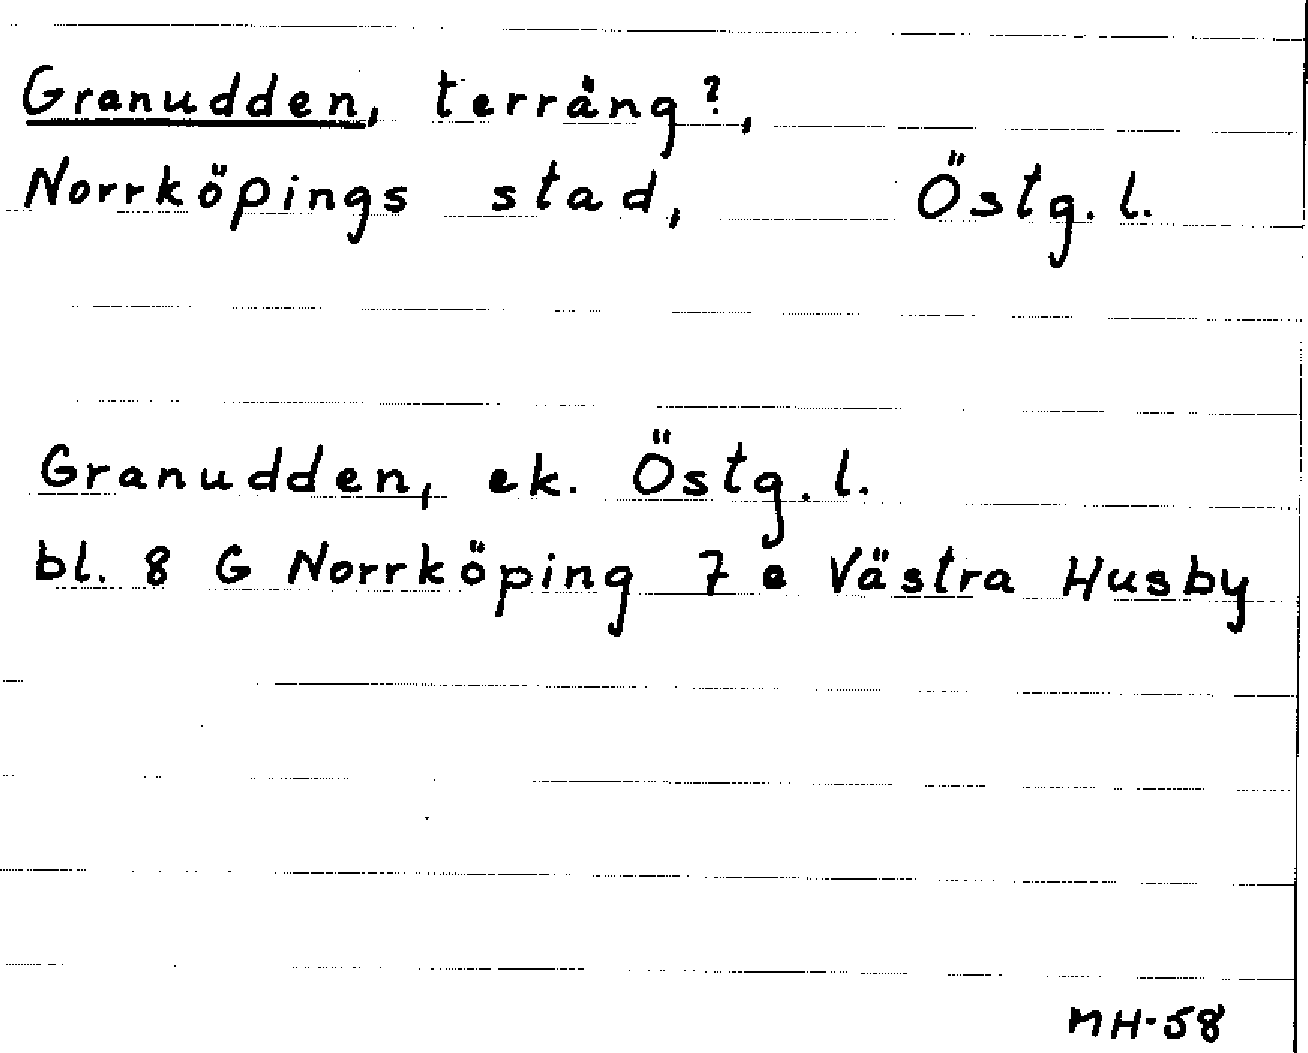 Granudden, terräng?,
Norrköpings stad, Östg. l.
Granudden, ek. Östg. l.
bl. 8 G Norrköping 7 e Västra Husby
NH-58